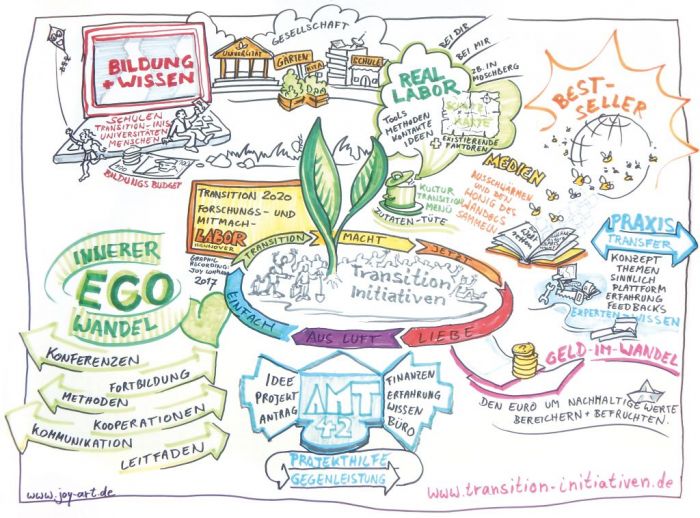 BILDUNG
+ WISSEN
SCHULEN
TRANSITION-INIS
UNIVERSITÄTEN
MENSCHEN
BILDUNGSBUDGET
GESELLSCHAFT
UNIVERSITÄT
GARTEN
KITA
SCHULE
REAL
LABOR
TOOLS
METHODEN
KONTAKTE
IDEEN
+ EXISTIERENDE
FAKTOREN!
BEI DIR
BEI MIR
Z.B. IN
MOSCHBERG
KULTUR
TRANSITION
MENÜ
ZUTATEN-TÜTE
BEST-
SELLER
MEDIEN
AUSSCHWÄRMEN
UND DEN
HONIG DES
WANDELS
SAMMELN
PRAXIS
TRANSFER
KONZEPT
THEMEN
SINNLICH
PLATTFORM
ERFAHRUNG
FEEDBACKS
EXPERTEN-WISSEN
TRANSITION 2020
FORSCHUNGS- UND
MITMACH-
LABOR
HANNOVER
GRAPHIC
RECORDING:
JOY LOHMANN
2017
TRANSITION
MACHT
JETZT
EINFACH
AUS LUFT
LIEBE
Transition
Initiativen
INNERER
ECO
WANDEL
KONFERENZEN
FORTBILDUNG
METHODEN
KOOPERATIONEN
KOMMUNIKATION
LEITFADEN
IDEE
PROJEKT
ANTRAG
AMT
42
FINANZEN
ERFAHRUNG
WISSEN
BÜRO
PROJEKTHILFE
GEGENLEISTUNG
GELD-IM-WANDEL
DEN EURO UM NACHHALTIGE WERTE
BEREICHERN + BEFRUCHTEN.
www.joy-art.de
www.transition-initiativen.de